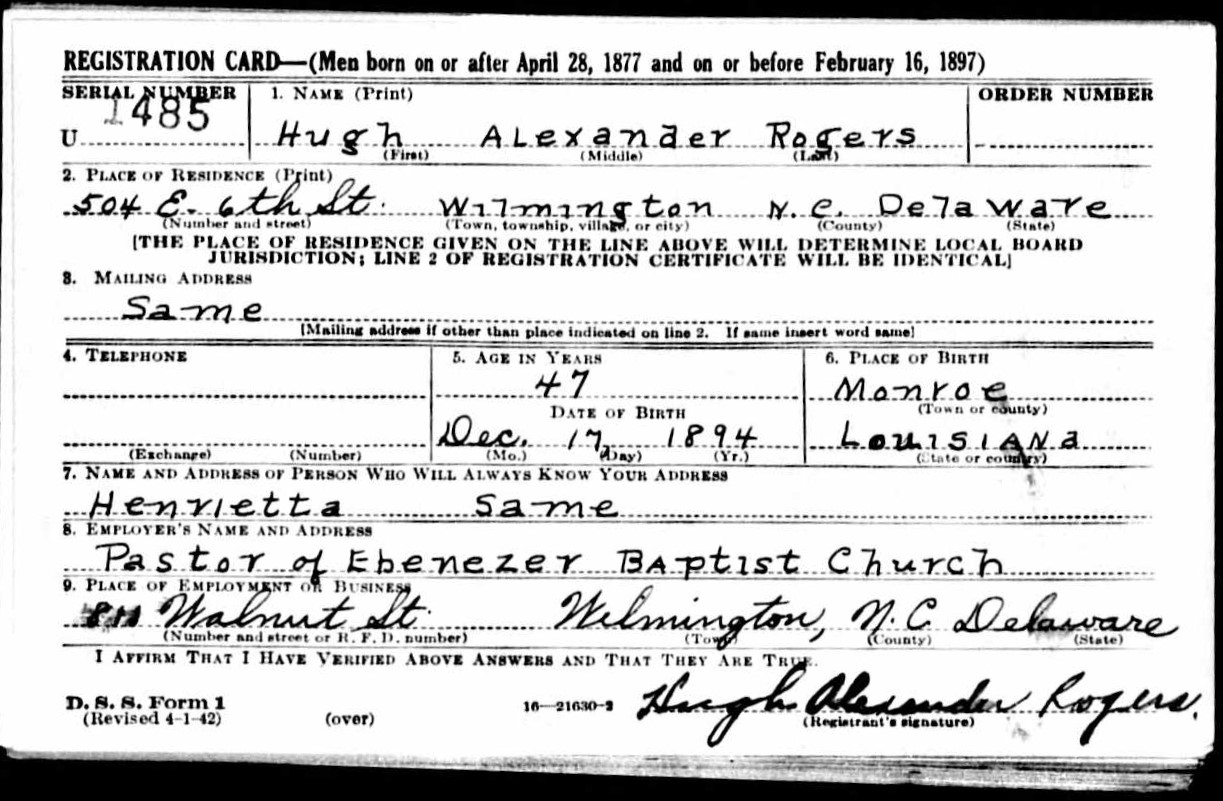 REGISTRATION CARD—(Men born on or after April 28, 1877 and on or before February 16, 1897)
SERIAL NUMBER 1. NAME (Print) ORDER NUMBER
U 1485 Hugh Alexander Rogers
(First) (Middle) (Last)
2. PLACE OF RESIDENCE (Print)
504 E. 6th St. Wilmington N.C. Delaware
(Number and street) (Town, township, village, or city) (County) (State)
[THE PLACE OF RESIDENCE GIVEN ON THE LINE ABOVE WILL DETERMINE LOCAL BOARD
JURISDICTION; LINE 2 OF REGISTRATION CERTIFICATE WILL BE IDENTICAL]
3. MAILING ADDRESS
Same
[Mailing address if other than place indicated on line 2. If same insert word same]
4. TELEPHONE 5. AGE IN YEARS 6. PLACE OF BIRTH
47 Monroe
DATE OF BIRTH (Town or county)
Dec. 17 1894 Louisiana
(Exchange) (Number) (Mo.) (Day) (Yr.) (State or country)
7. NAME AND ADDRESS OF PERSON WHO WILL ALWAYS KNOW YOUR ADDRESS
Henrietta Same
8. EMPLOYER'S NAME AND ADDRESS
Pastor of Ebenezer Baptist Church
9. PLACE OF EMPLOYMENT OR BUSINESS
811 Walnut St. Wilmington, N.C. Delaware
(Number and street or R. F. D. number) (Town) (County) (State)
I AFFIRM THAT I HAVE VERIFIED ABOVE ANSWERS AND THAT THEY ARE TRUE.
D. S. S. Form 1
(Revised 4-1-42) (over) 16—21630-2 Hugh Alexander Rogers.
(Registrant's signature)